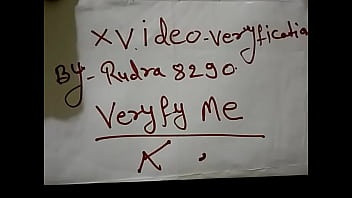 XV.ideo-veryficatio
By-Rudra 8290.
Veryfy Me